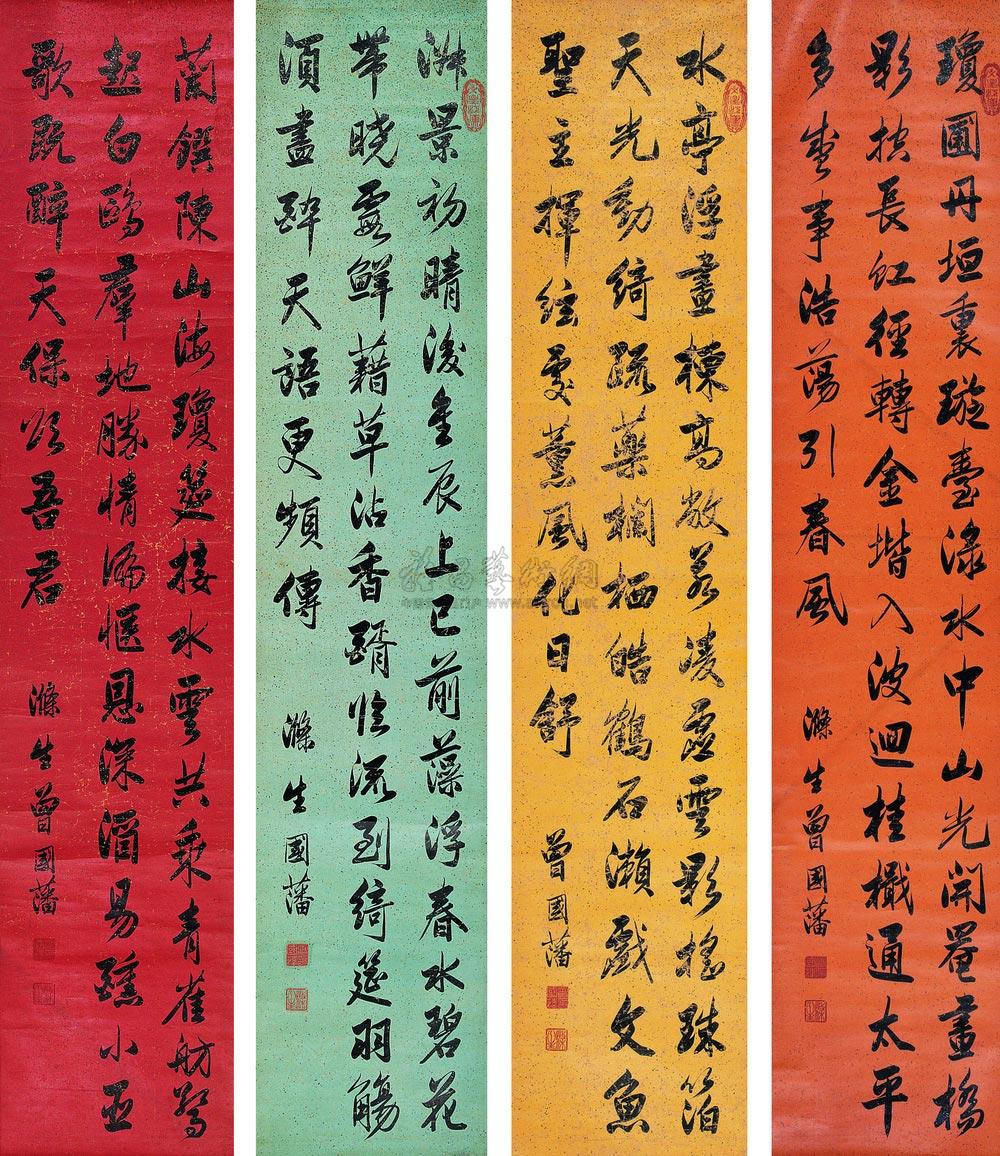 瓊圃丹垣裏璇臺淥水中山光開罨畫橋
影挾長虹徑轉金堦入波迴桂檻通太平
多樂事浩蕩引春風
滌生曾國藩
水亭浮畫棟高敞若凌虛雲影搖珠箔
天光動綺疏藥欄栖皓鶴石瀨戲文魚
聖主揮絃處薰風化日舒
曾國藩
淑景初晴後良辰上巳前藻浮春水碧花
帶曉霞鮮藉草沾香醑臨流列綺筵羽觴
須盡醉天語更頻傳
滌生國藩
蘭饌陳山海瓊筵接水雲共乘青雀舫驚
起白鷗羣地勝情偏愜恩深酒易醺小臣
歌既醉天保頌吾君
滌生曾國藩